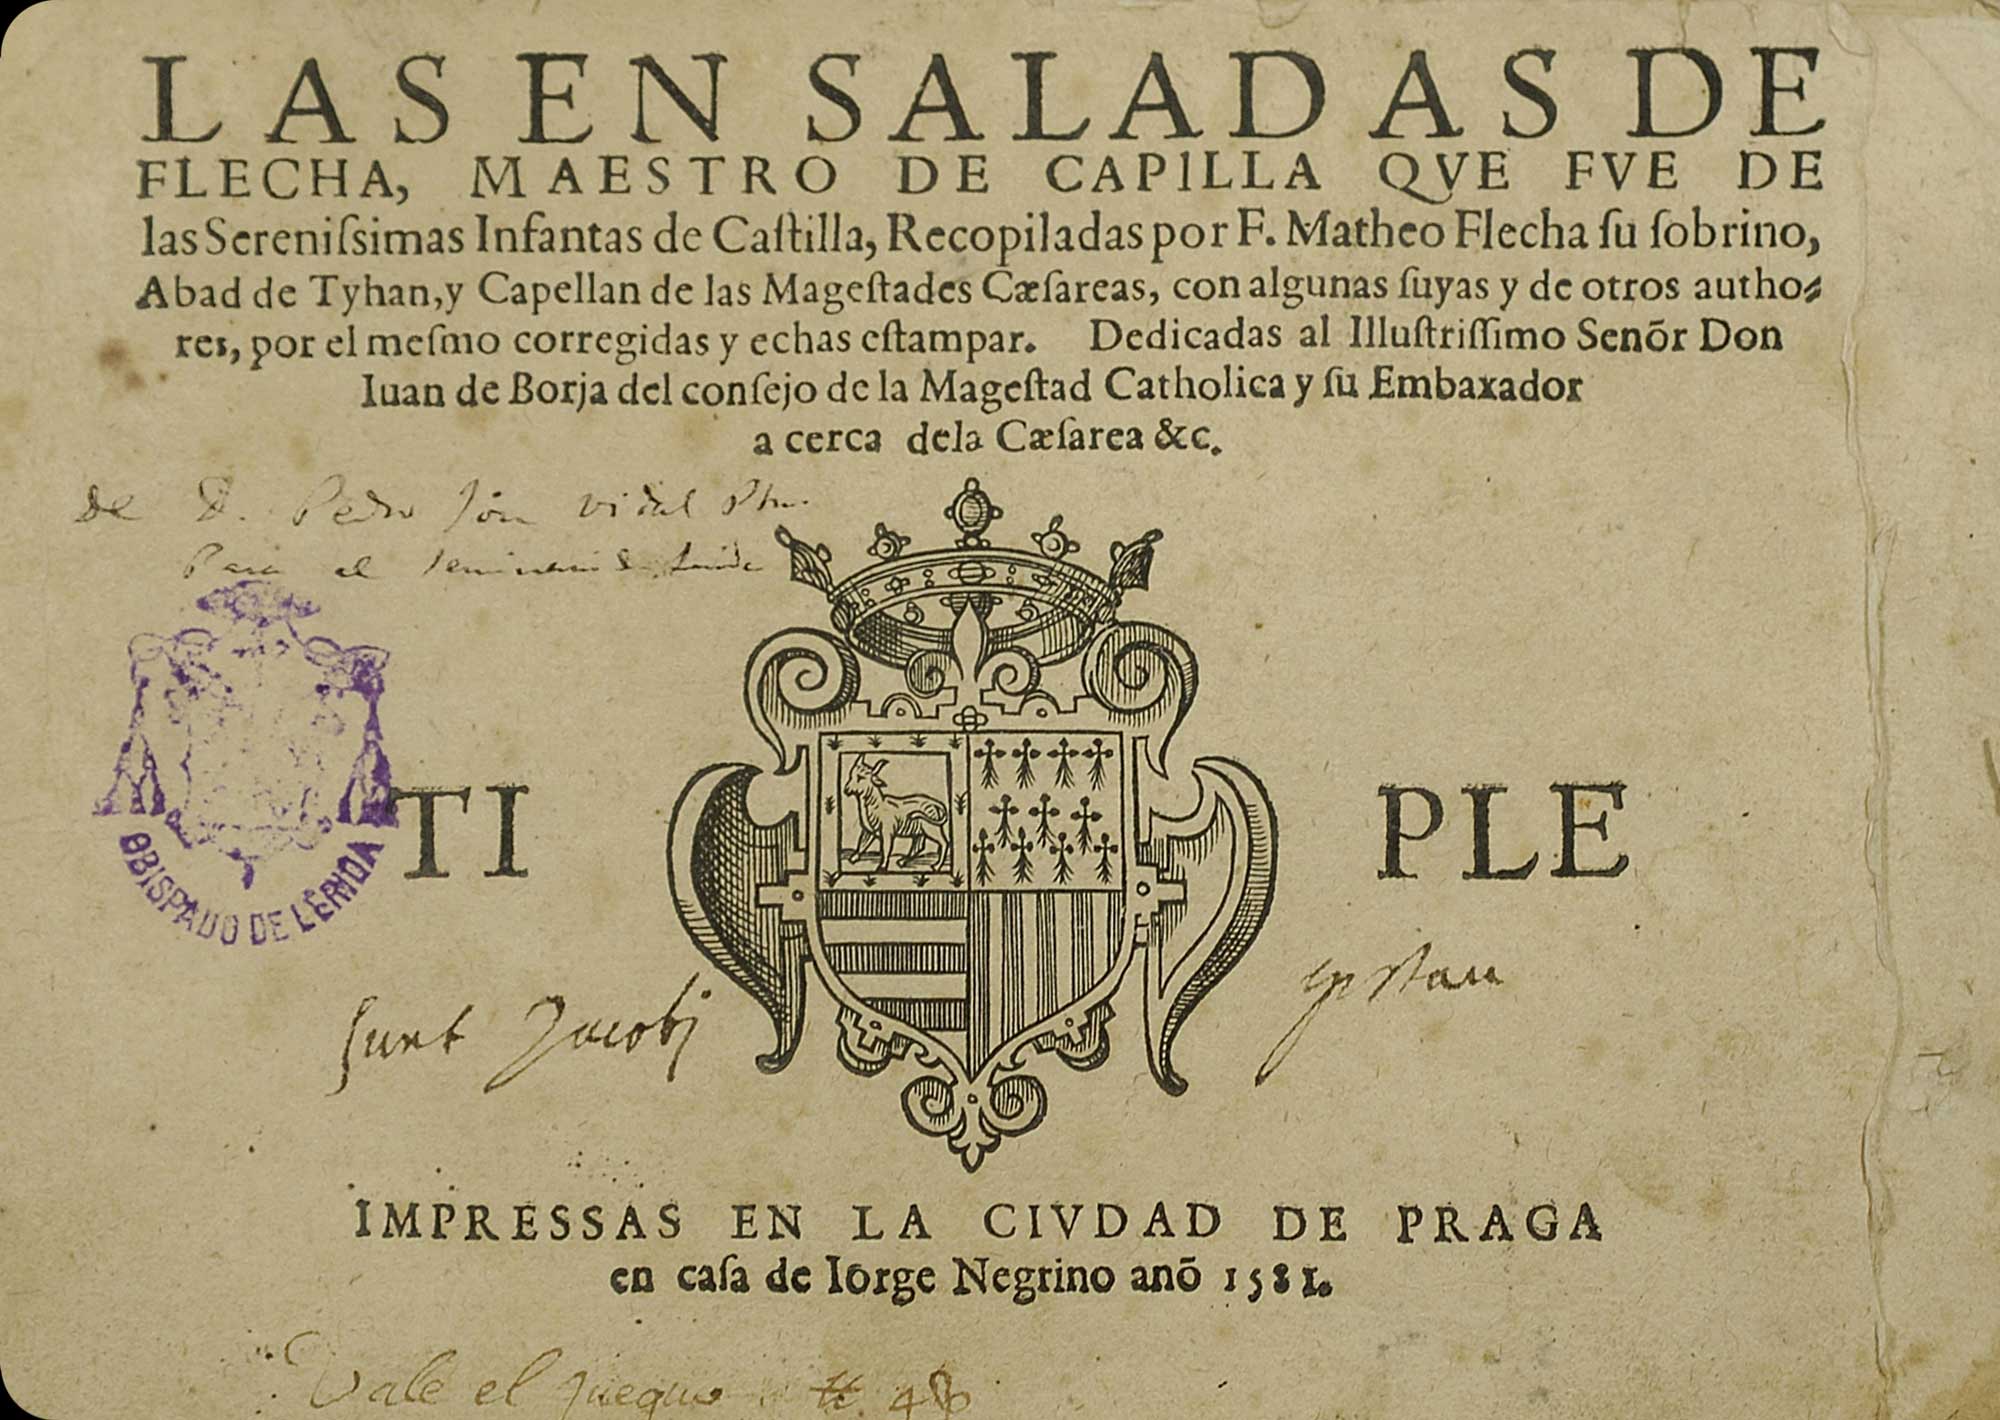 LAS EN SALADAS DE
FLECHA, MAESTRO DE CAPILLA QVE FVE DE
las Sereniſsimas Infantas de Caſtilla, Recopiladas por F. Matheo Flecha ſu ſobrino,
Abad de Tyhan, y Capellan de las Mageſtades Cæſareas, con algunas ſuyas y de otros autho-
res, por el meſmo corregidas y echas eſtampar. Dedicadas al Illuſtriſſimo Senõr Don
Iuan de Borja del conſejo de la Mageſtad Catholica y ſu Embaxador
a cerca dela Cæſarea &c.
de D. Pedro Vidal
Para el
TI PLE
OBISPADO DE LÉRIDA
sunt Jacobi
IMPRESSAS EN LA CIVDAD DE PRAGA
en caſa de Iorge Negrino anõ 1581.
Vale el juequo